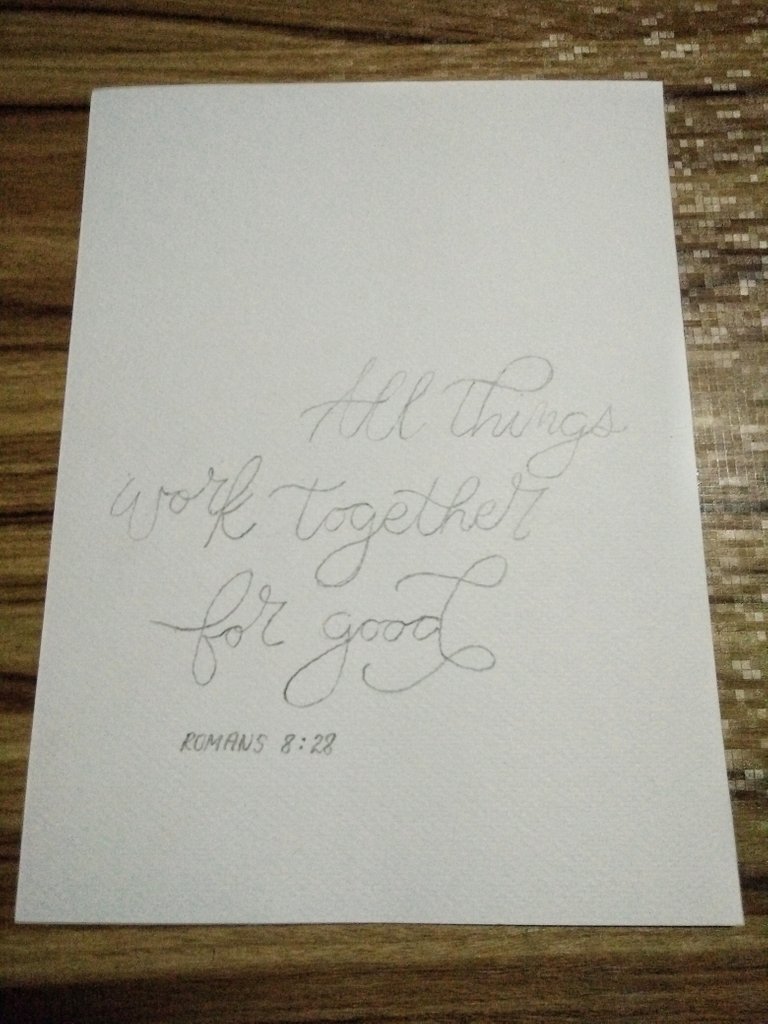 All Things
work Together
for good
ROMANS 8:28